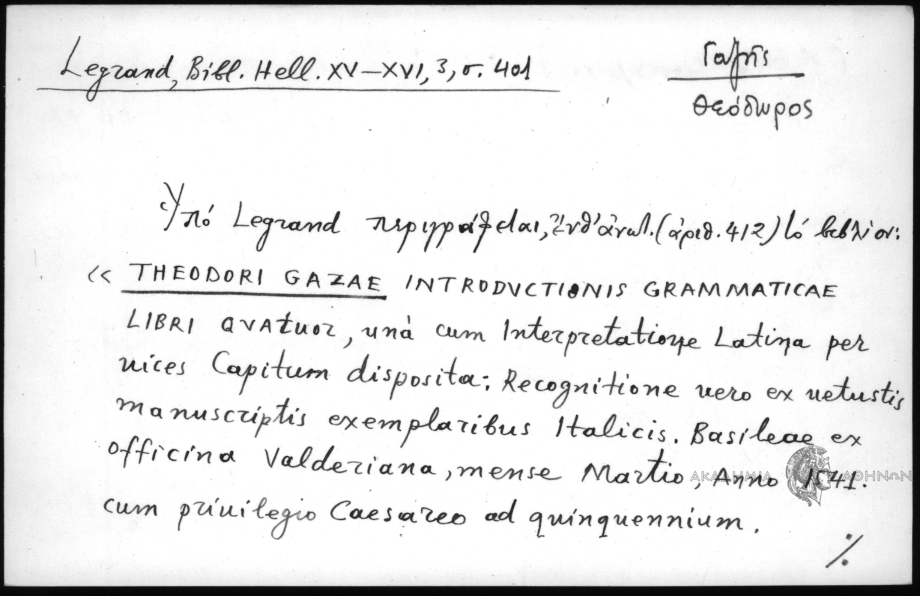 Legrand, Bibl. Hell. XV–XVI, 3, σ. 401
Γαζῆς
Θεόδωρος
Ὑπό Legrand περιγράφεται, ἐνθ' ἀνωτ. (ἀριθ. 412) τό βιβλίον:
« THEODORI GAZAE INTRODVCTIONIS GRAMMATICAE
LIBRI QVATuor, unà cum Interpretatione Latina per
uices Capitum disposita: Recognitione uero ex uetustis
manuscriptis exemplaribus Italicis. Basileae ex
officina Valderiana, mense Martio, Anno 1541.
cum priuilegio Caesareo ad quinquennium.
ΑΚΑΔΗΜΙΑ ΑΘΗΝΩΝ
./.